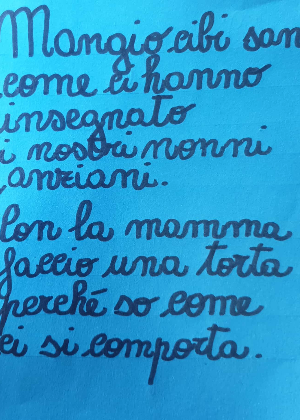 Mangio cibi san
come ci hanno
insegnato
i nostri nonni
anziani.
Con la mamma
faccio una torta
perché so come
ci si comporta.